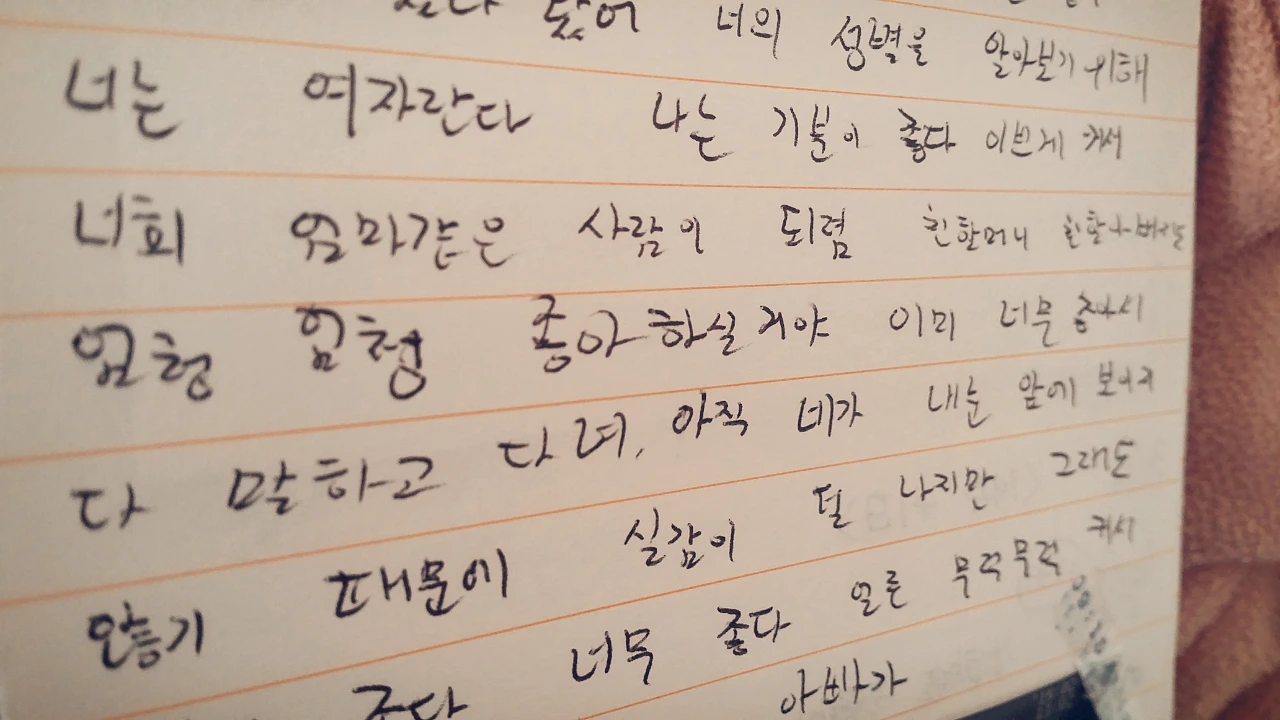 너의 성별을 알아보기 위해
너는 여자란다 나는 기분이 좋다 이쁘게 커서
너희 엄마같은 사람이 되렴 친할머니 친할아버지도
엄청 엄청 좋아하실거야 이미 너무 좋아서
다 말하고 다녀, 아직 네가 내눈 앞에 보이지
않기 때문에 실감이 덜 나지만 그래도
너무 좋다 얼른 무럭무럭 커서
아빠가